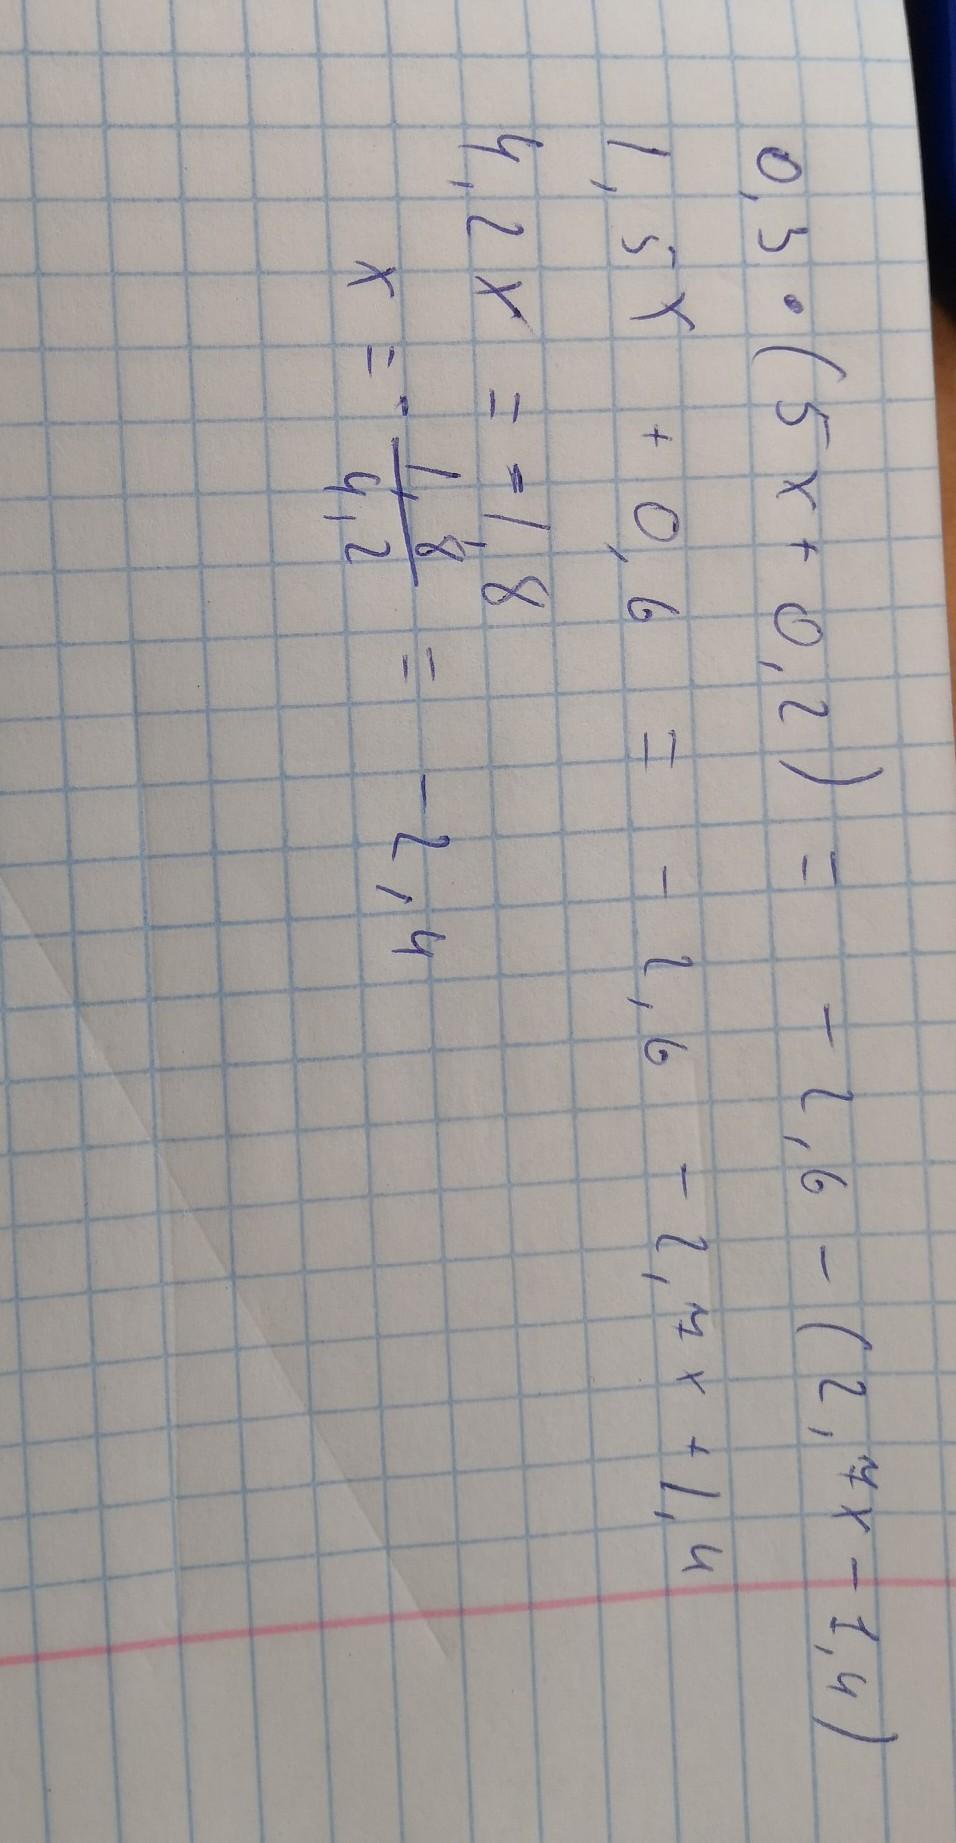 0,3 · (5x + 0,2) = - 2,6 - (2,7x - 1,4)
1,5x + 0,6 = - 2,6 - 2,7x + 1,4
4,2x = - 1,8
x = - 1,8/4,2 = - 2,4